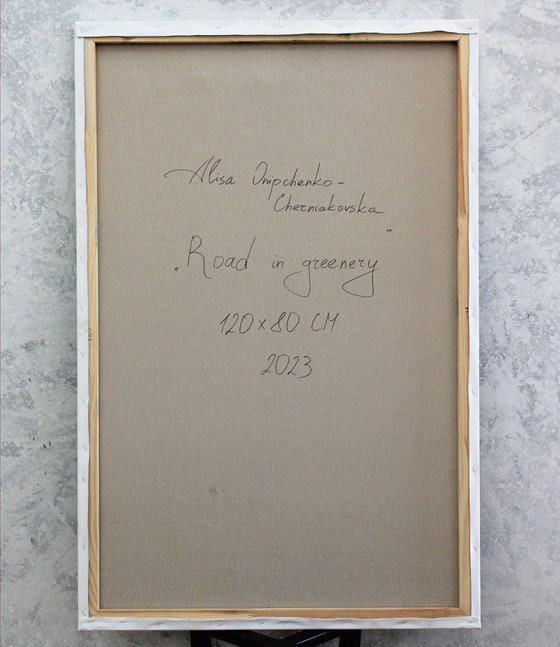 Alisa Onipchenko-
Cherniakovska
„Road in greenery"
120x80 CM
2023